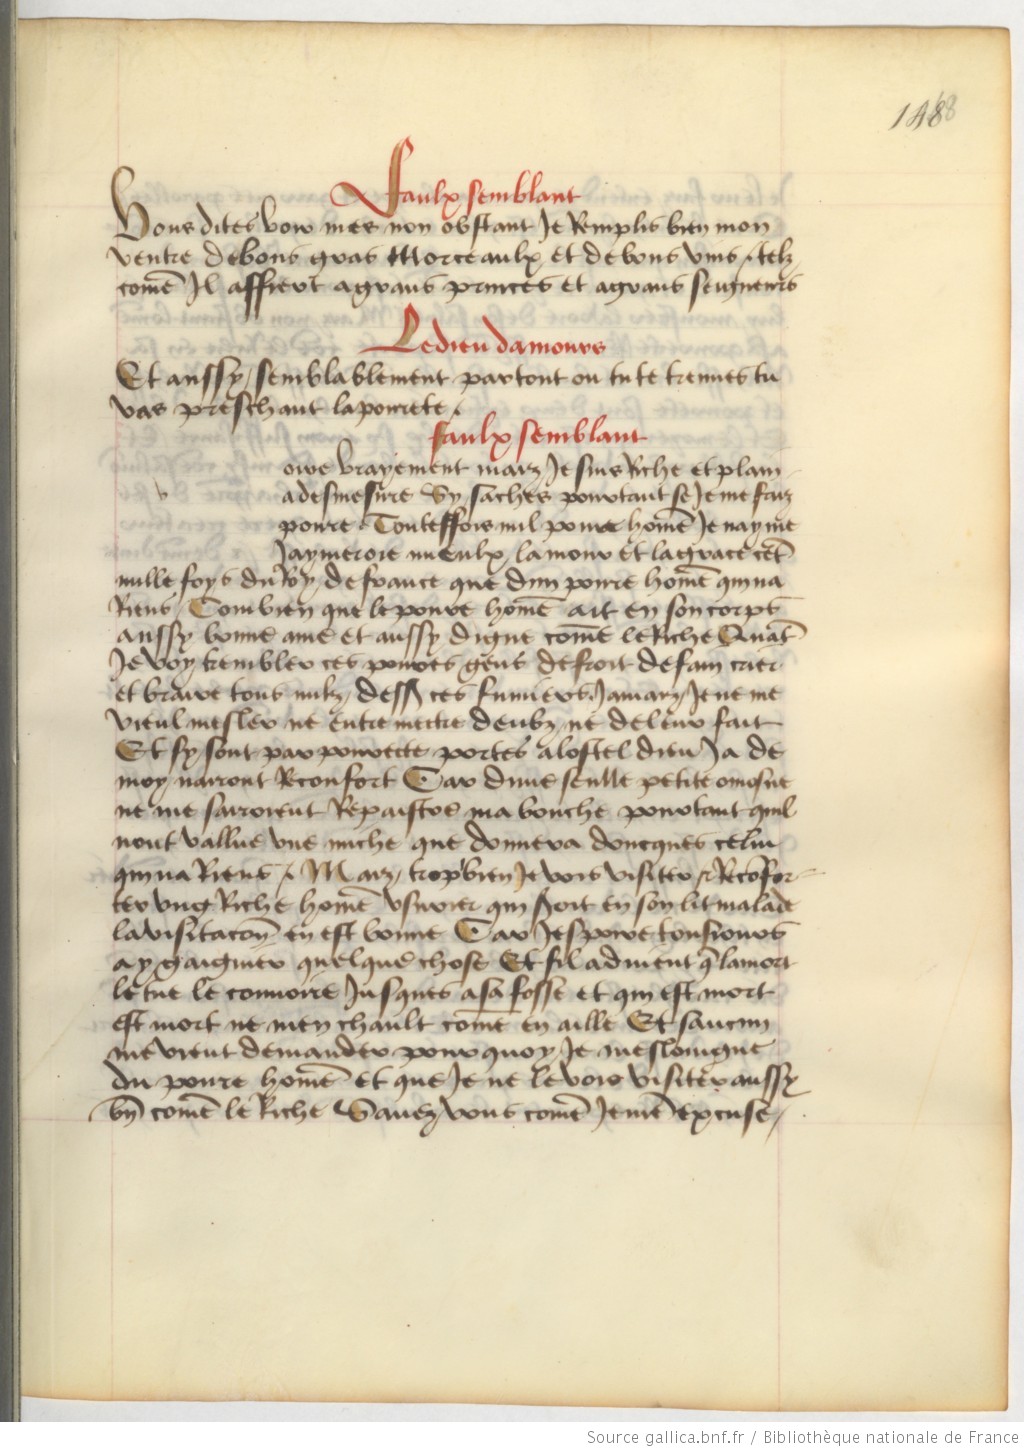 148
Faulx semblant
Vous dites voir mes non obstant Je Remplis bien mon
ventre de bons gras Morceaulx et de bons vins / telz
com̄e Il affiert a grans princes et a grans seigneurs
Le dieu damours
Et aussy / semblablement partout ou tu te tennes tu
vas preschant la pourete /
faulx semblant
owe vrayement maiz Je suis Riche et plain
a desmesure Sy saches pourtant se Je me faiz
poure Touteffois nul poure hom̄e Je nayme
Jaymeroie mieulx lamour et la grace cēt
mille foys du Roy de france que dun poure hom̄e qui na
Riens / Combien que le poure hom̄e ait en son corps
aussy bonne ame et aussy digne com̄e le Riche Quāt
Je voy trembler ces poures gens de froit de fain crier
et braire tous nulz dess ces fumiers Jamaiz Je ne me
vieul mesler ne entremectre deulx ne de leur fait
Et sy sont par pourete portes a lostel dieu Ja de
moy narront Reconfort Car dune seulle petite omosne
ne me sarroient Repaistre ma bouche pourtant quil
nont vallue une miche que donnera doncques celui
qui na Riens / Maiz trop bien Je vois visiter et Recōfor-
ter ung Riche hom̄e usurier qui soit en son lit malade
la visitacōn en est bonne Car Jespoire tousiours
a y gaignier quelque chose Et sil advient q̄ la mort
le tue le convoire Jusques a sa fosse et qui est mort
est mort ne men chault com̄e en aille Et saucun
me vient demander pour quoy Je meslongne
du poure hom̄e et que Je ne le vois visiter aussy
bn̄ com̄e le Riche Savez vous com̄e Je mēn excuse /
Source gallica.bnf.fr / Bibliothèque nationale de France